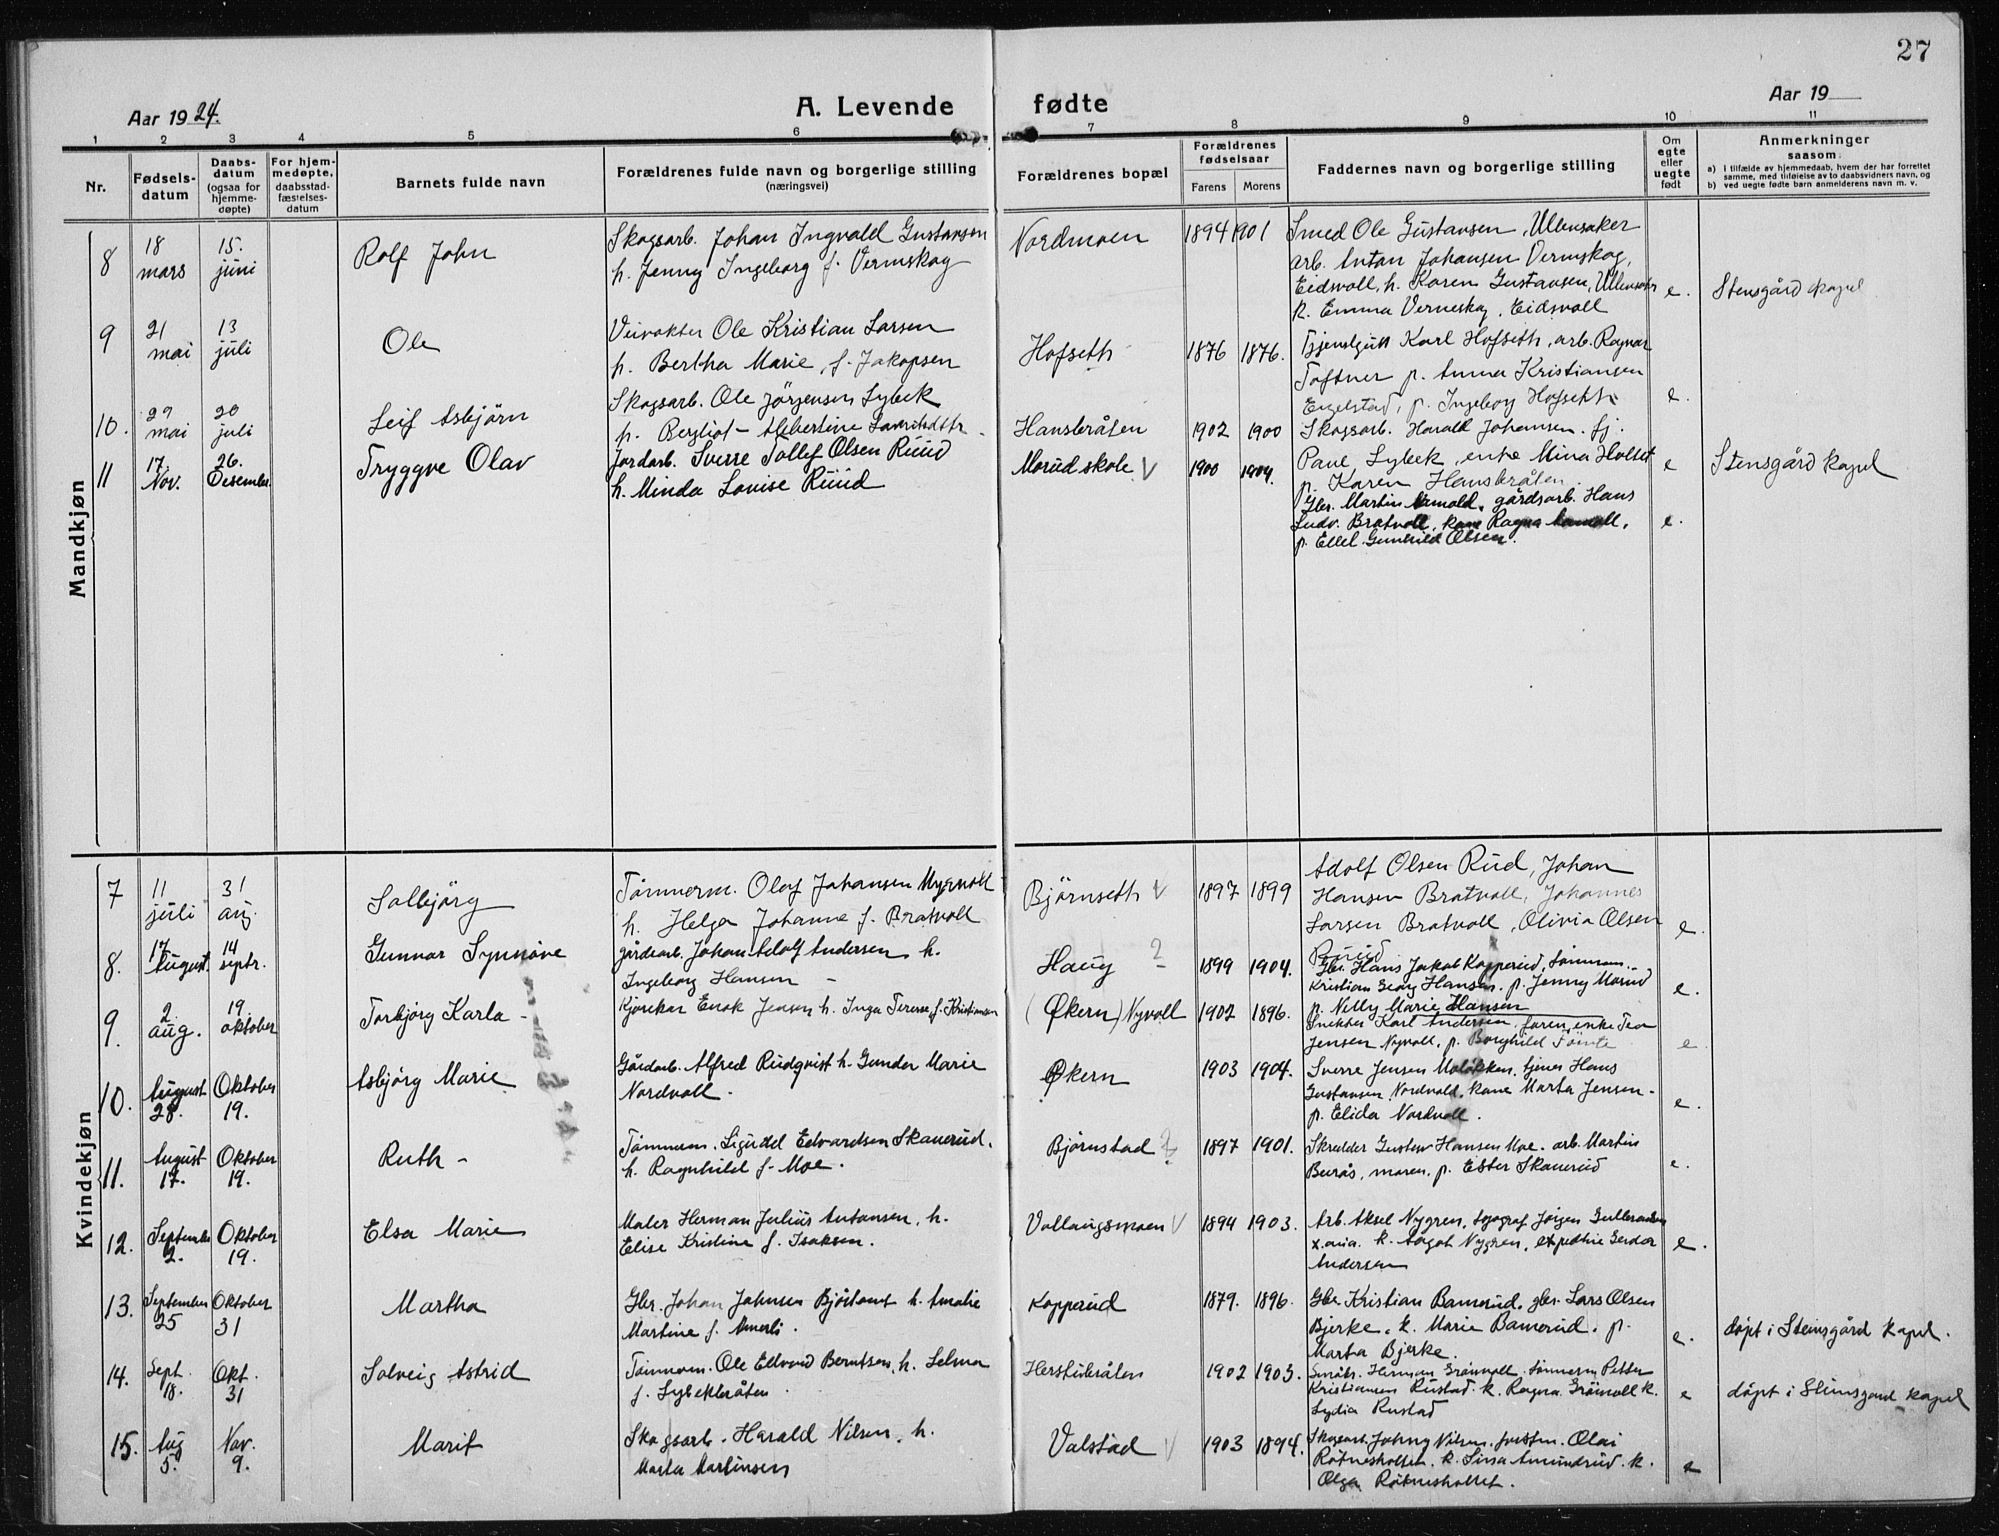 27
Aar 1924.
A. Levende fødte
Aar 19
1 2 3 4 5 6 7 8 9 10 11
Nr.
Fødsels-
datum
Daabs-
datum
(ogsaa for
hjemme-
døpte)
For hjem-
medøpte,
daabsstad-
fæstelses-
datum
Barnets fulde navn
Forældrenes fulde navn og borgerlige stilling
(næringsvei)
Forældrenes bopæl
Forældrenes
fødselsaar
Farens Morens
Faddernes navn og borgerlige stilling
Om
egte
eller
uegte
født
Anmerkninger
saasom:
a) I tilfælde av hjemmedaab, hvem der har forrettet
samme, med tilføielse av to daabsvidners navn, og
b) ved uegte fødte barn anmelderens navn m. v.
Mandkjøn
8
18
mars
15.
juni
Rolf John
Skogsarb. Johan Ingvald Gustavsen
h. Jenny Ingeborg f. Vermskog
Nordmoen
1894 1901
Smed Ole Gustavsen, Ullensaker
arb. Anton Johansen Vermskog,
Eidsvoll, h. Karen Gustavsen, Ullensaker
p. Emma Verneskog, Eidsvoll
e.
Stensgård kapel
9
21
mai
13
juli
Ole
Veivokter Ole Kristian Larsen
h. Bertha Marie, f. Jakopsen
Hofseth
1876 1876.
Karl Hofseth, arb. Ragnar
Toftner p. Anna Kristiansen
Engelstad, p. Ingeborg Hofseth
e.
10.
29
mai
20
juli
Leif Asbjörn
Skogsarb. Ole Jörgensen Lybek
h. Bergliot - Albertine
Hansbråten
1902 1900
Skogsarb. Harald Johansen. fj.
Paul Lybek, enke Mina Holset
p. Karen Hansbråten
e
11
17.
Nov.
26.
Desember
Tryggve Olav
Jordarb. Sverre Tollef Olsen Ruud
h. Minda Lovise Ruud
Morudskole V
1900 1904.
Gbr. Martin gårdsarb. Hans
Ludv. Bratvoll, kone Ragna
p. Ellel Gunhild Olsen.
e.
Stensgård kapel
Kvindekjøn
7
11
juli
31
aug.
Solbjörg
Tømmerm. Olaf Johansen Mygvoll
h. Helga Johanne f. Bratvoll
Bjørnseth V
1897 1899
Adolf Olsen Rud, Johan
Hansen Bratvoll, Johannes
Larsen Bratvoll, Olivia Olsen
Ruud
e.
8.
17
August
14
septr.
Gunvor Synnöve
gårdsarb. Johan Adolf Andersen h.
Ingeborg Hansen -
Haug ?
1899 1904.
Gbr. Hans Jakob Kopperud, tömmerm.
Kristian Georg Hansen. p. Jenny Morud
p. Nelly Marie Hansen
e.
9.
2.
aug.
19.
oktober
Torbjörg Karla -
Kjörekar Enok Jensen h. Inga Terese f. Kristiansen
(Økern) Nyvoll
1902 1896.
Snekker Karl Andersen, faren, enke Tea
Jensen Nyvoll, p. Borghild Tömte
e.
10.
August
28.
Oktober
19.
Asbjörg Marie
Gårdarb. Alfred Rudqvist h. Gunda Marie
Nordvoll.
Økern
1903 1904.
Sverre Jensen Moløkken, tjener Hans
Gustavsen Nordvold, kone Marta Jensen -
p. Elida Nordvoll.
e.
11.
August
17.
Oktober
19.
Ruth -
Tømmerm. Sigurd Edvardsen Skanerud.
h. Ragnhild f. Moe.
Bjørnstad ?
1897 1901.
Skredder Gustav Hansen Moe. arb. Martin
Burås, moren, p. Ester Skanerud
e.
12.
September
2.
Oktober
19.
Elsa Marie
Maler Herman Julius Antonsen, h.
Elise Kristine f. Isaksen.
Vollaugsmoen V
1894 1903.
Arb. Aksel Nygren, typograf Jörgen
k. Aagot Nygren, Gerda
Andersen
e.
13.
September
25
Oktober
31
Martha
Gbr. Johan Johnsen h. Amalie
Martine f.
Kopperud
1879. 1896.
Gbr Kristian Bamerud, gbr. Lars Olsen
Bjerke, k. Marie Bamerud. p.
Marta Bjerke.
e.
döpt i Stensgård kapel.
14.
Sept.
18.
Okt.
31
Solveig Astrid
Tömmerm. Ole Edvard Berntsen, h. Selma
f. Lybekbråten.
Herstubråten
1902 1903.
Småbr. Herman Grönvoll, tömmerm Petter
Kristiansen Rustad. k. Ragna Grönvoll k.
Lydia Rustad
e
döpt i Stensgård kapel
15.
Aug
5.
Nov.
9.
Marit
Skogsarb. Harald Nilsen, h.
Marta Martinsen
Valstad V
1903 1894.
Skogsarb. Johny Nilsen, Olai
Rötnesholtet. k. Lina Amundrud. k.
Olga Rötnesholtet.
e